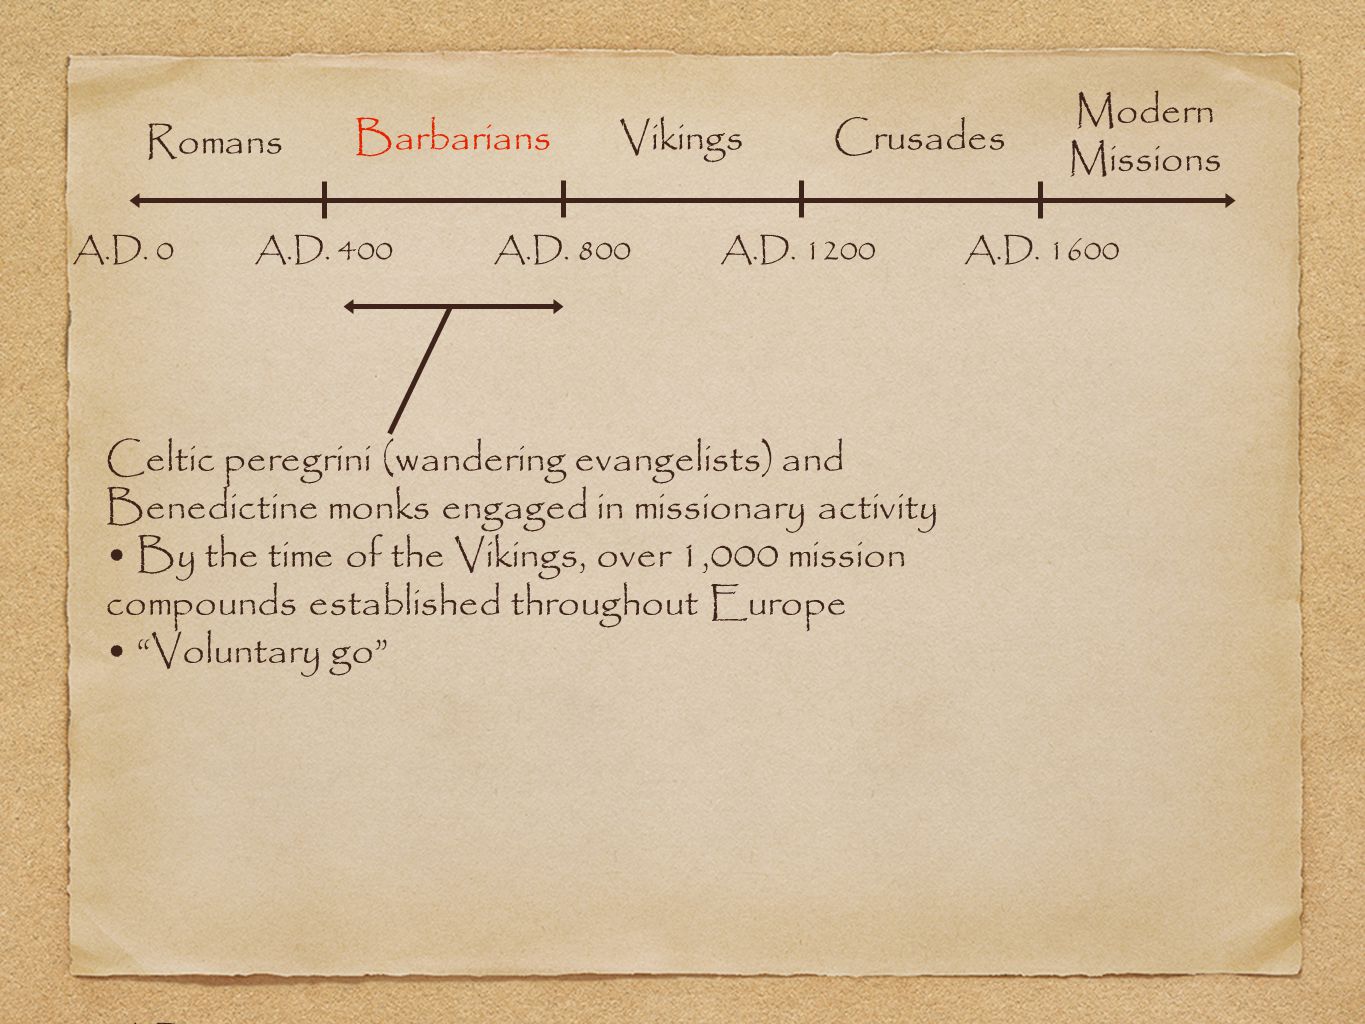 Romans Barbarians Vikings Crusades Modern
Missions
A.D. 0 A.D. 400 A.D. 800 A.D. 1200 A.D. 1600
Celtic peregrini (wandering evangelists) and
Benedictine monks engaged in missionary activity
• By the time of the Vikings, over 1,000 mission
compounds established throughout Europe
• “Voluntary go”